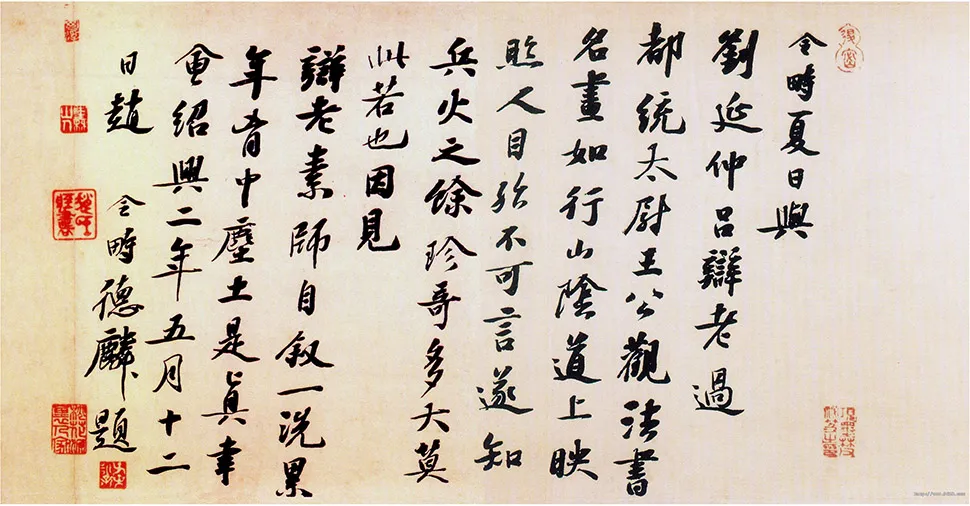 令畤夏日與
劉延仲吕辯老過
都統太尉王公觀法書
名畫如行山陰道上映
照人目殆不可言遂知
兵火之餘珍竒多大莫
此若也因見
辯老素師自叙一洗累
年胷中塵土是真幸
會紹興二年五月十二
日趙 令畤德麟題